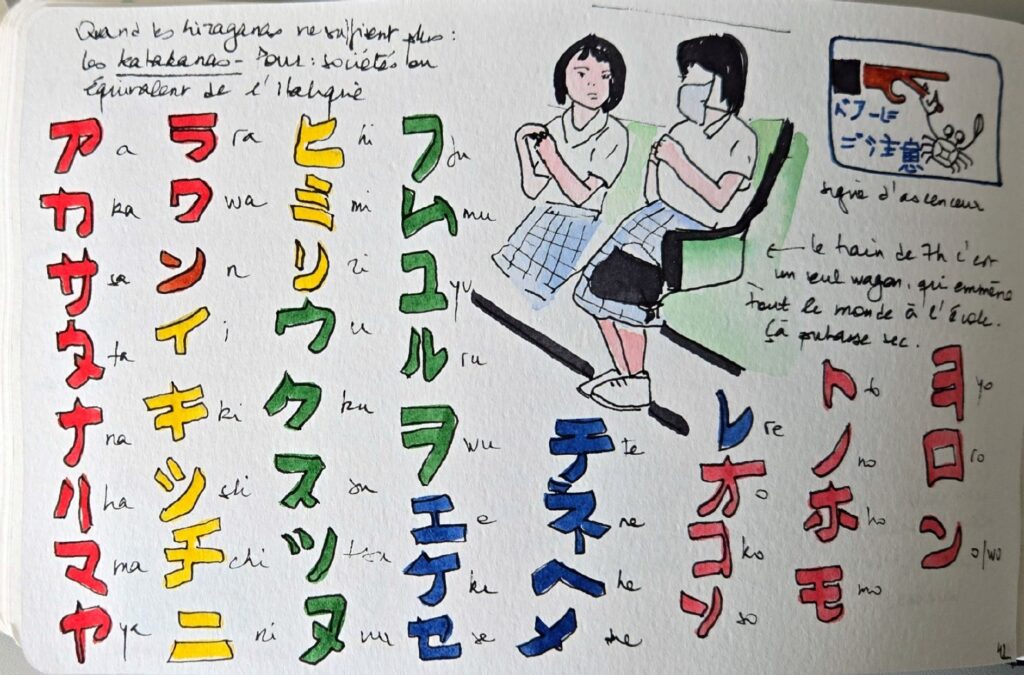 Quand les hiraganas ne suffisent plus :
les katakanas - Pour : sociétés ou
équivalent de l'italique
ア a
カ ka
サ sa
タ ta
ナ na
ハ ha
マ ma
ヤ ya
ラ ra
ワ wa
ン n
イ i
キ ki
シ shi
チ chi
ニ ni
ヒ hi
ミ mi
リ ri
ウ u
ク ku
ス su
ツ tsu
ヌ nu
フ fu
ム mu
ユ yu
ル ru
ヲ wu
エ e
ケ ke
セ se
テ te
ネ ne
ヘ he
メ me
レ re
オ o
コ ko
ソ so
ト to
ノ no
ホ ho
モ mo
ヨ yo
ロ ro
ン o/wo
ドアーに
ご注意
signe d'ascenceur
← le train de 7h c'est
un seul wagon, qui emmène
tout le monde à l'école.
Çà sec.
42